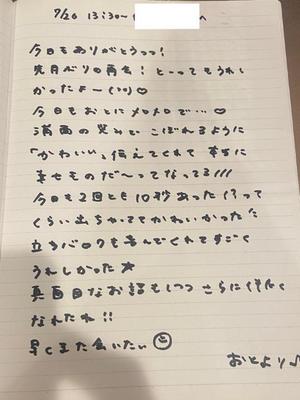 7/26 13:30〜 へ
今日もありがとうっっ!
先月ぶりの再会! とーってもうれし
かったよー(˘˘)♡
今日もおとにメロメロで…♡
満面の笑みで こぼれるように
「かわいい」伝えてくれて 本当に
幸せものだ〜ってなる!!!
今日も2回とも10秒あった!?って
くらい出ちゃっててかわいかった
立ちバックも喜んでくれてすごく
うれしかった★
真面目なお話もしつつ さらに仲良く
なれたね!!
早くまた会いたい
おとより♪